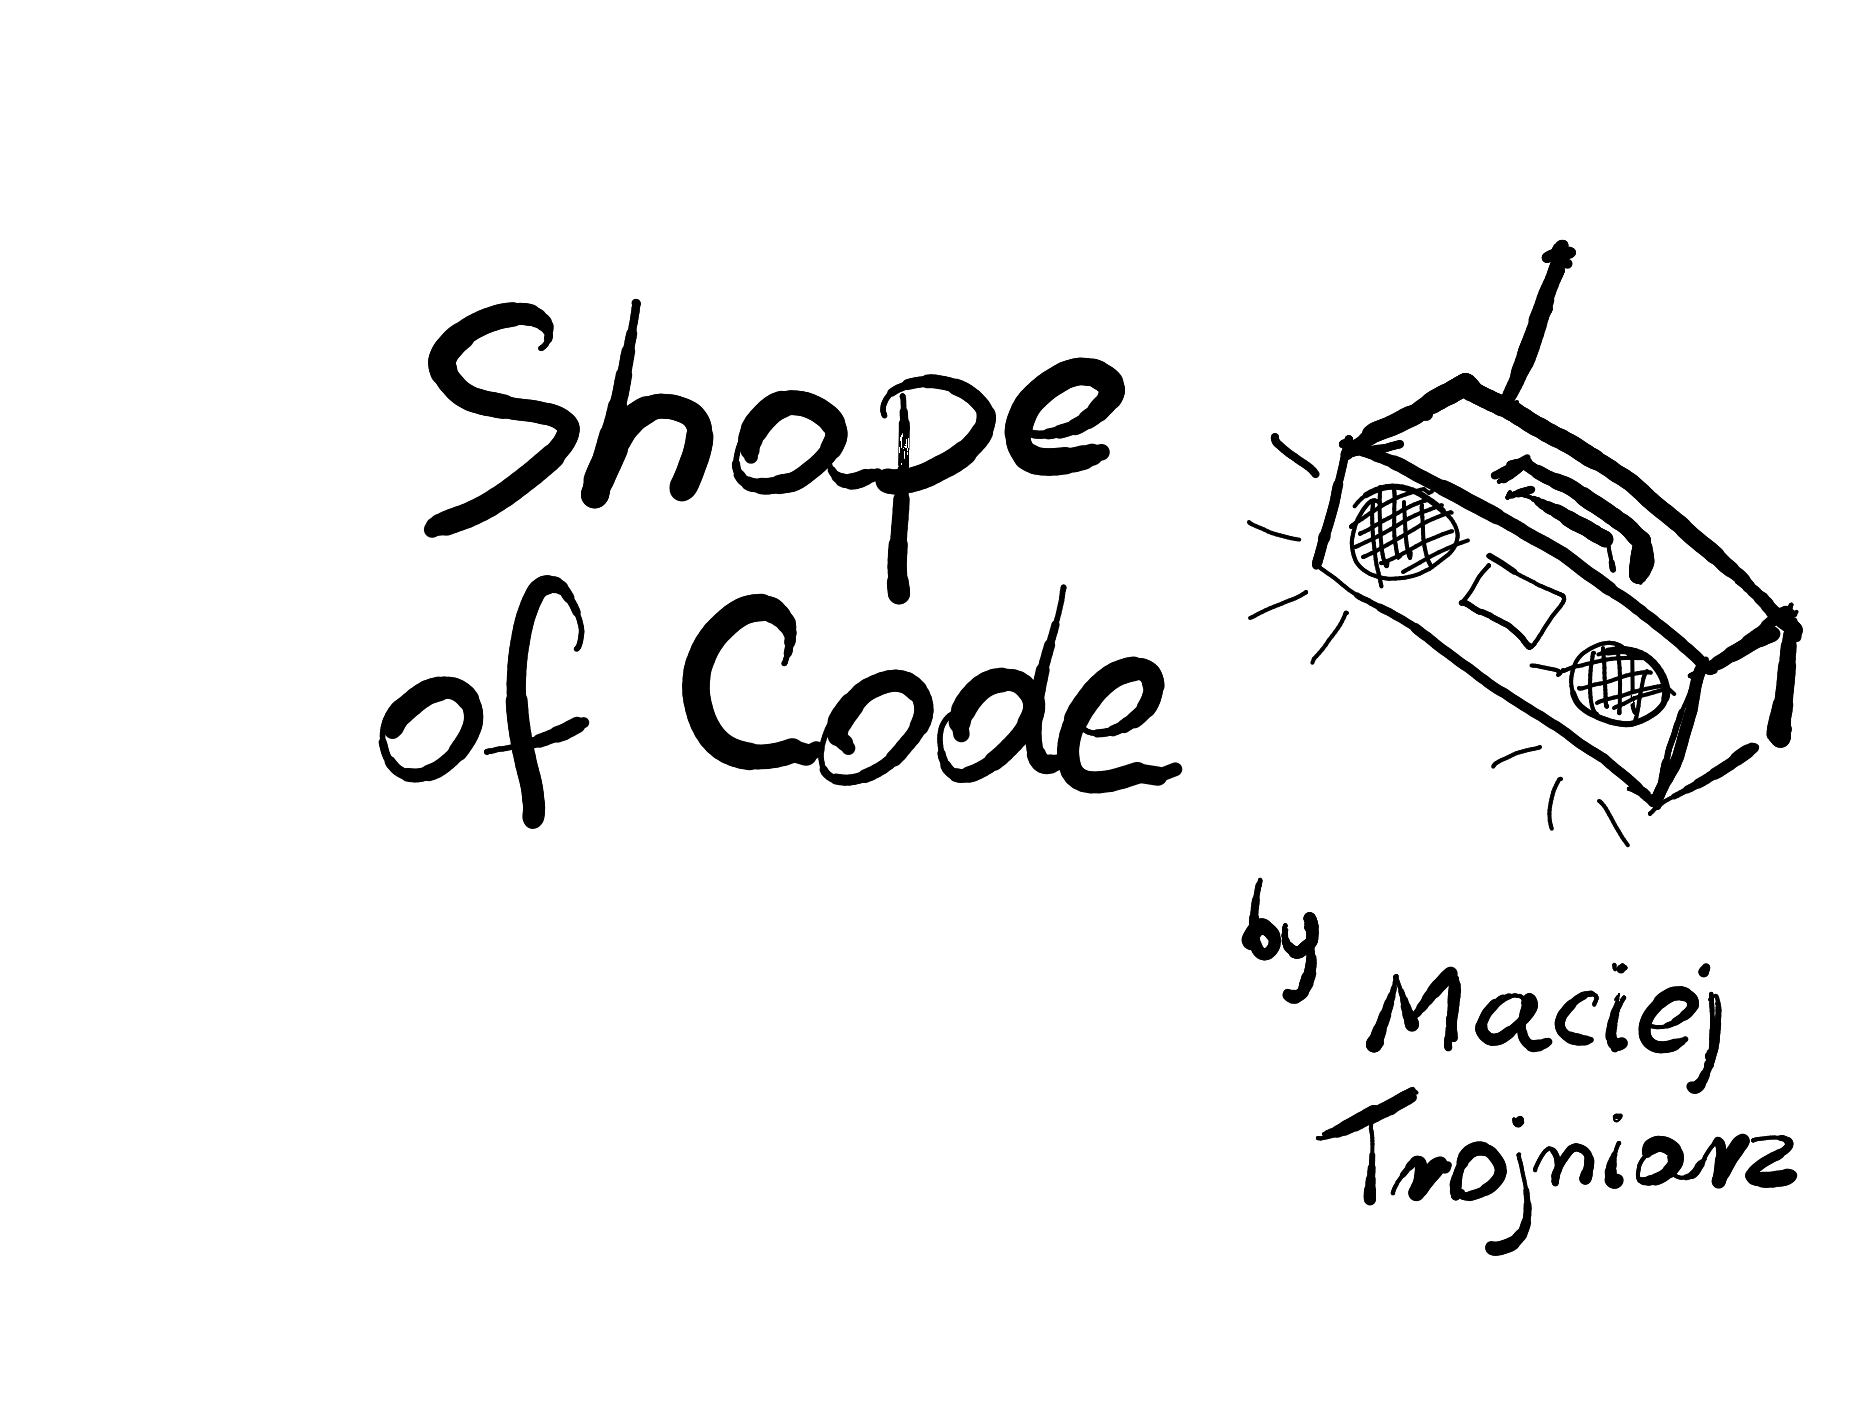 Shape
of Code
by
Maciej
Trojniarz